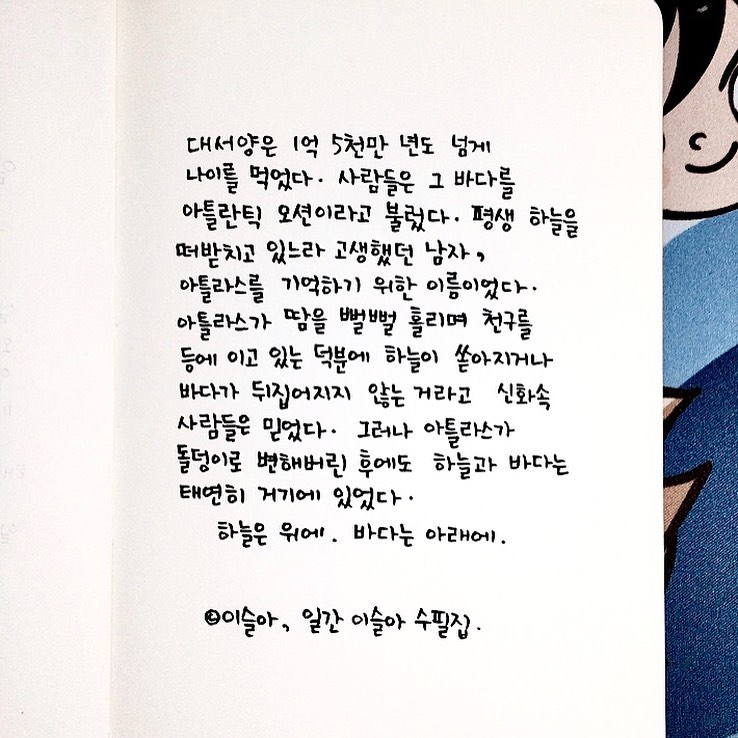 대서양은 1억 5천만 년도 넘게
나이를 먹었다. 사람들은 그 바다를
아틀란틱 오션이라고 불렀다. 평생 하늘을
떠받치고 있느라 고생했던 남자,
아틀라스를 기억하기 위한 이름이었다.
아틀라스가 땀을 뻘뻘 흘리며 천구를
등에 이고 있는 덕분에 하늘이 쏟아지거나
바다가 뒤집어지지 않는 거라고 신화속
사람들은 믿었다. 그러나 아틀라스가
돌덩이로 변해버린 후에도 하늘과 바다는
태연히 거기에 있었다.
하늘은 위에. 바다는 아래에.
©이슬아, 일간 이슬아 수필집.